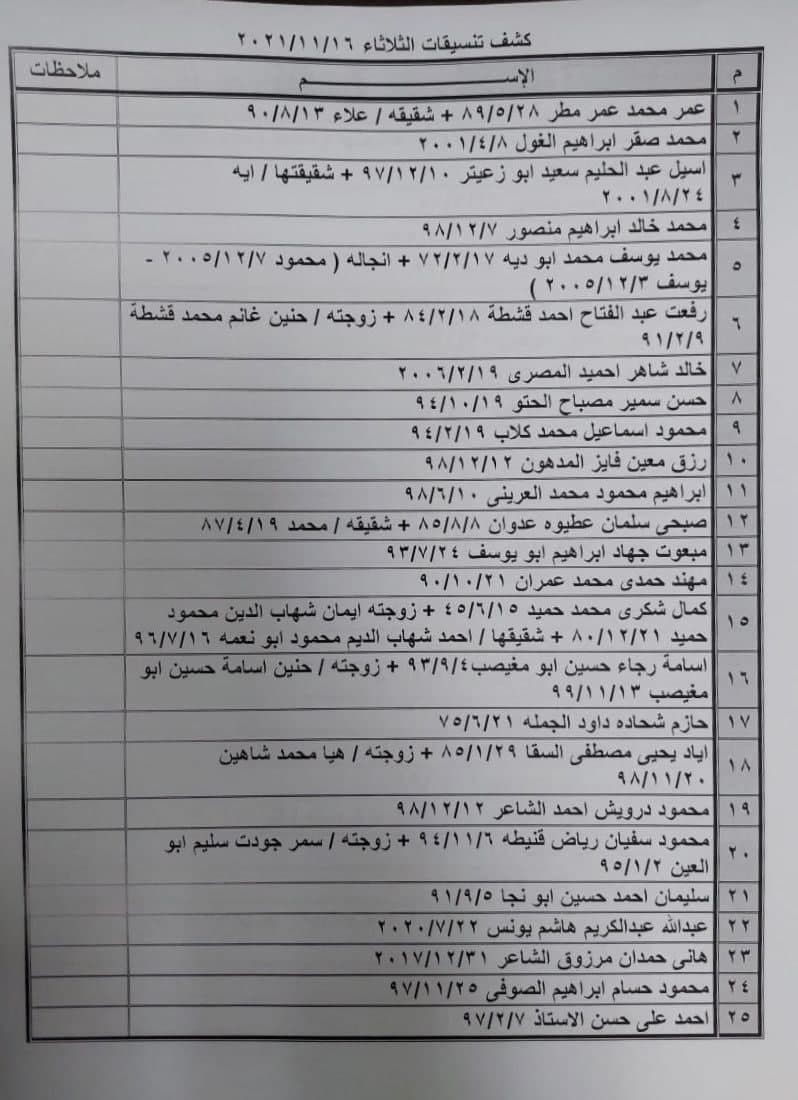 كشف تنسيقات الثلاثاء ٢٠٢١/١١/١٦
م الإســـــــــــــم ملاحظات
١ عمر محمد عمر مطر ٨٩/٥/٢٨ + شقيقه / علاء ٩٠/٨/١٣
٢ محمد صقر ابراهيم الغول ٢٠٠١/٤/٨
٣ اسيل عبد الحليم سعيد ابو زعيتر ٩٧/١٢/١٠ + شقيقتها / ايه
٢٠٠١/٨/٢٤
٤ محمد خالد ابراهيم منصور ٩٨/١٢/٧
٥ محمد يوسف محمد ابو ديه ٧٢/٢/١٧ + انجاله ( محمود ٢٠٠٥/١٢/٧ -
يوسف ٢٠٠٥/١٢/٣ )
٦ رفعت عبد الفتاح احمد قشطة ٨٤/٢/١٨ + زوجته / حنين غانم محمد قشطة
٩١/٢/٩
٧ خالد شاهر احميد المصرى ٢٠٠٦/٢/١٩
٨ حسن سمير مصباح الحتو ٩٤/١٠/١٩
٩ محمود اسماعيل محمد كلاب ٩٤/٢/١٩
١٠ رزق معين فايز المدهون ٩٨/١٢/١٢
١١ ابراهيم محمود محمد العرينى ٩٨/٦/١٠
١٢ صبحى سلمان عطيوه عدوان ٨٥/٨/٨ + شقيقه / محمد ٨٧/٤/١٩
١٣ مبعوت جهاد ابراهيم ابو يوسف ٩٣/٧/٢٤
١٤ مهند حمدى محمد عمران ٩٠/١٠/٢١
١٥ كمال شكرى محمد حميد ٤٥/٦/١٥ + زوجته ايمان شهاب الدين محمود
حميد ٨٠/١٢/٢١ + شقيقها / احمد شهاب الديم محمود ابو نعمه ٩٦/٧/١٦
١٦ اسامة رجاء حسين ابو مغيصب٩٣/٩/٤ + زوجته / حنين اسامة حسين ابو
مغيصب ٩٩/١١/١٣
١٧ حازم شحاده داود الجمله ٧٥/٦/٢١
١٨ اياد يحيى مصطفى السقا ٨٥/١/٢٩ + زوجته / هيا محمد شاهين
٩٨/١١/٢٠
١٩ محمود درويش احمد الشاعر ٩٨/١٢/١٢
٢٠ محمود سفيان رياض قنيطه ٩٤/١١/٦ + زوجته / سمر جودت سليم ابو
العين ٩٥/١/٢
٢١ سليمان احمد حسين ابو نجا ٩١/٩/٥
٢٢ عبدالله عبدالكريم هاشم يونس ٢٠٢٠/٧/٢٢
٢٣ هانى حمدان مرزوق الشاعر ٢٠١٧/١٢/٣١
٢٤ محمود حسام ابراهيم الصوفى ٩٧/١١/٢٥
٢٥ احمد على حسن الاستاذ ٩٧/٢/٧